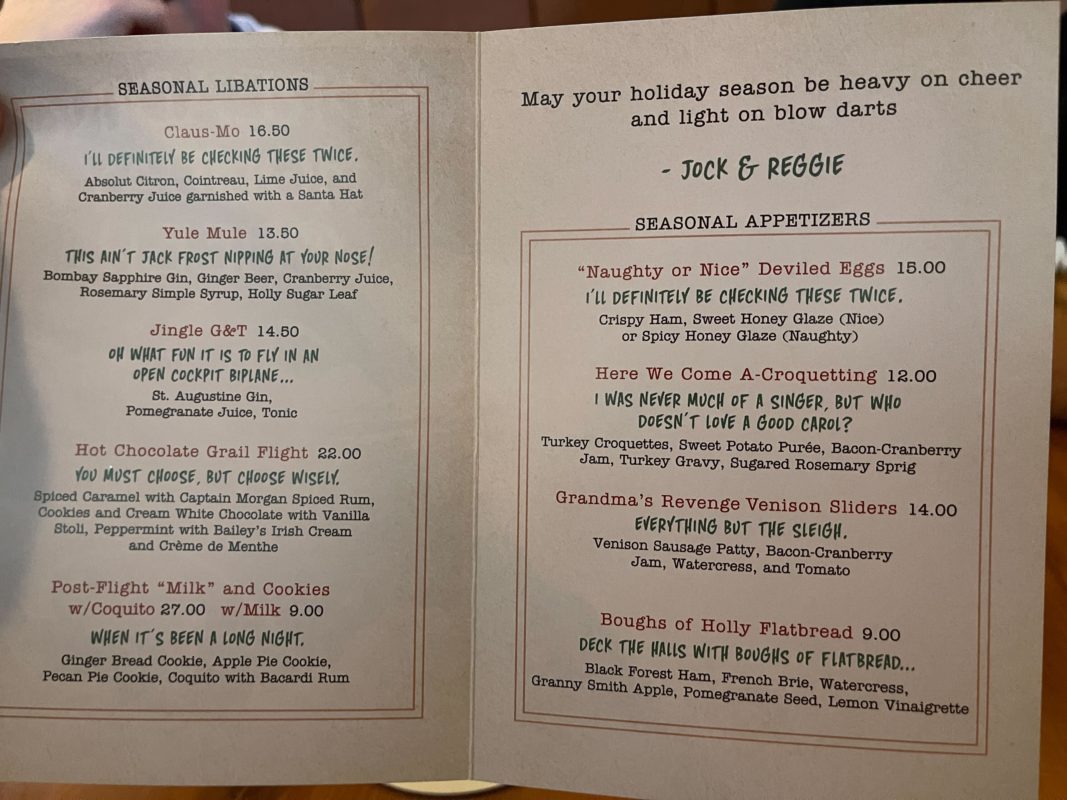 SEASONAL LIBATIONS
Claus-Mo 16.50
I'LL DEFINITELY BE CHECKING THESE TWICE.
Absolut Citron, Cointreau, Lime Juice, and
Cranberry Juice garnished with a Santa Hat
Yule Mule 13.50
THIS AIN'T JACK FROST NIPPING AT YOUR NOSE!
Bombay Sapphire Gin, Ginger Beer, Cranberry Juice,
Rosemary Simple Syrup, Holly Sugar Leaf
Jingle G&T 14.50
OH WHAT FUN IT IS TO FLY IN AN
OPEN COCKPIT BIPLANE...
St. Augustine Gin,
Pomegranate Juice, Tonic
Hot Chocolate Grail Flight 22.00
YOU MUST CHOOSE, BUT CHOOSE WISELY.
Spiced Caramel with Captain Morgan Spiced Rum,
Cookies and Cream White Chocolate with Vanilla
Stoli, Peppermint with Bailey's Irish Cream
and Crème de Menthe
Post-Flight “Milk” and Cookies
w/Coquito 27.00 w/Milk 9.00
WHEN IT'S BEEN A LONG NIGHT.
Ginger Bread Cookie, Apple Pie Cookie,
Pecan Pie Cookie, Coquito with Bacardi Rum
May your holiday season be heavy on cheer
and light on blow darts
- JOCK & REGGIE
SEASONAL APPETIZERS
“Naughty or Nice” Deviled Eggs 15.00
I'LL DEFINITELY BE CHECKING THESE TWICE.
Crispy Ham, Sweet Honey Glaze (Nice)
or Spicy Honey Glaze (Naughty)
Here We Come A-Croquetting 12.00
I WAS NEVER MUCH OF A SINGER, BUT WHO
DOESN'T LOVE A GOOD CAROL?
Turkey Croquettes, Sweet Potato Purée, Bacon-Cranberry
Jam, Turkey Gravy, Sugared Rosemary Sprig
Grandma's Revenge Venison Sliders 14.00
EVERYTHING BUT THE SLEIGH.
Venison Sausage Patty, Bacon-Cranberry
Jam, Watercress, and Tomato
Boughs of Holly Flatbread 9.00
DECK THE HALLS WITH BOUGHS OF FLATBREAD...
Black Forest Ham, French Brie, Watercress,
Granny Smith Apple, Pomegranate Seed, Lemon Vinaigrette